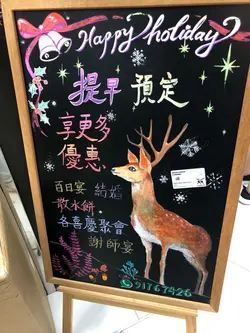 Happy holiday
提早 預定
享更多
優惠
百日宴 結婚
散水餅
各喜慶聚會
謝師宴
91767426